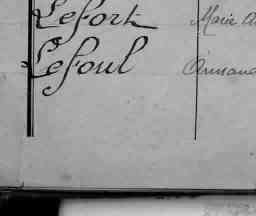 Lefort Marie
Lefoul Arman